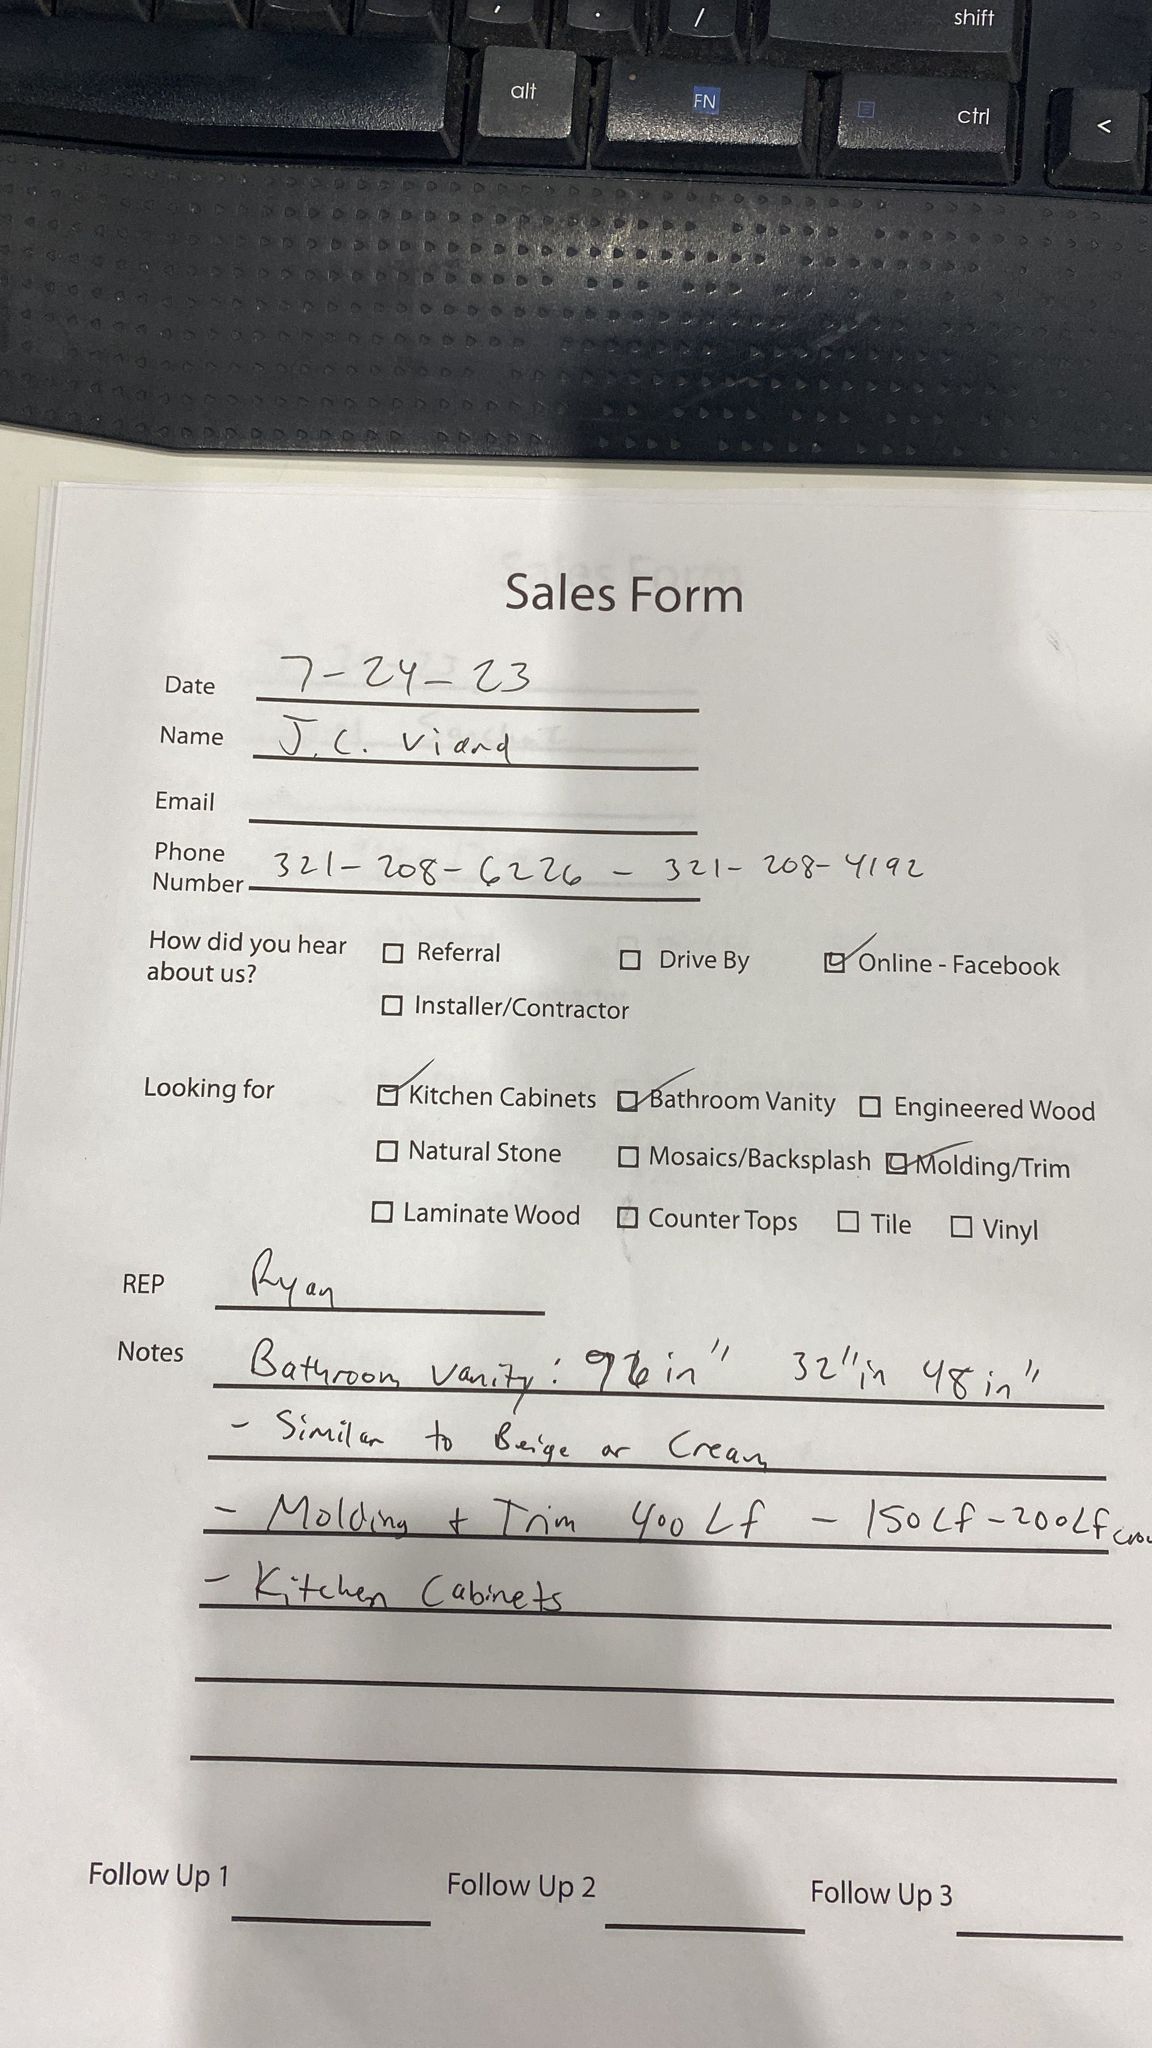 , . / shift
alt FN ctrl <
Sales Form
Date 7-24-23
Name J.C. Viand
Email
Phone Number 321-208-6226 - 321-208-4192
How did you hear about us? Referral Drive By Online - Facebook
Installer/Contractor
Looking for Kitchen Cabinets Bathroom Vanity Engineered Wood
Natural Stone Mosaics/Backsplash Molding/Trim
Laminate Wood Counter Tops Tile Vinyl
REP Ryan
Notes Bathroom Vanity: in" 32"in 48in"
- Similar to Beige or Cream
- Molding + Trim 400 Lf - 150Lf-200Lf
- Kitchen Cabinets
Follow Up 1 Follow Up 2 Follow Up 3